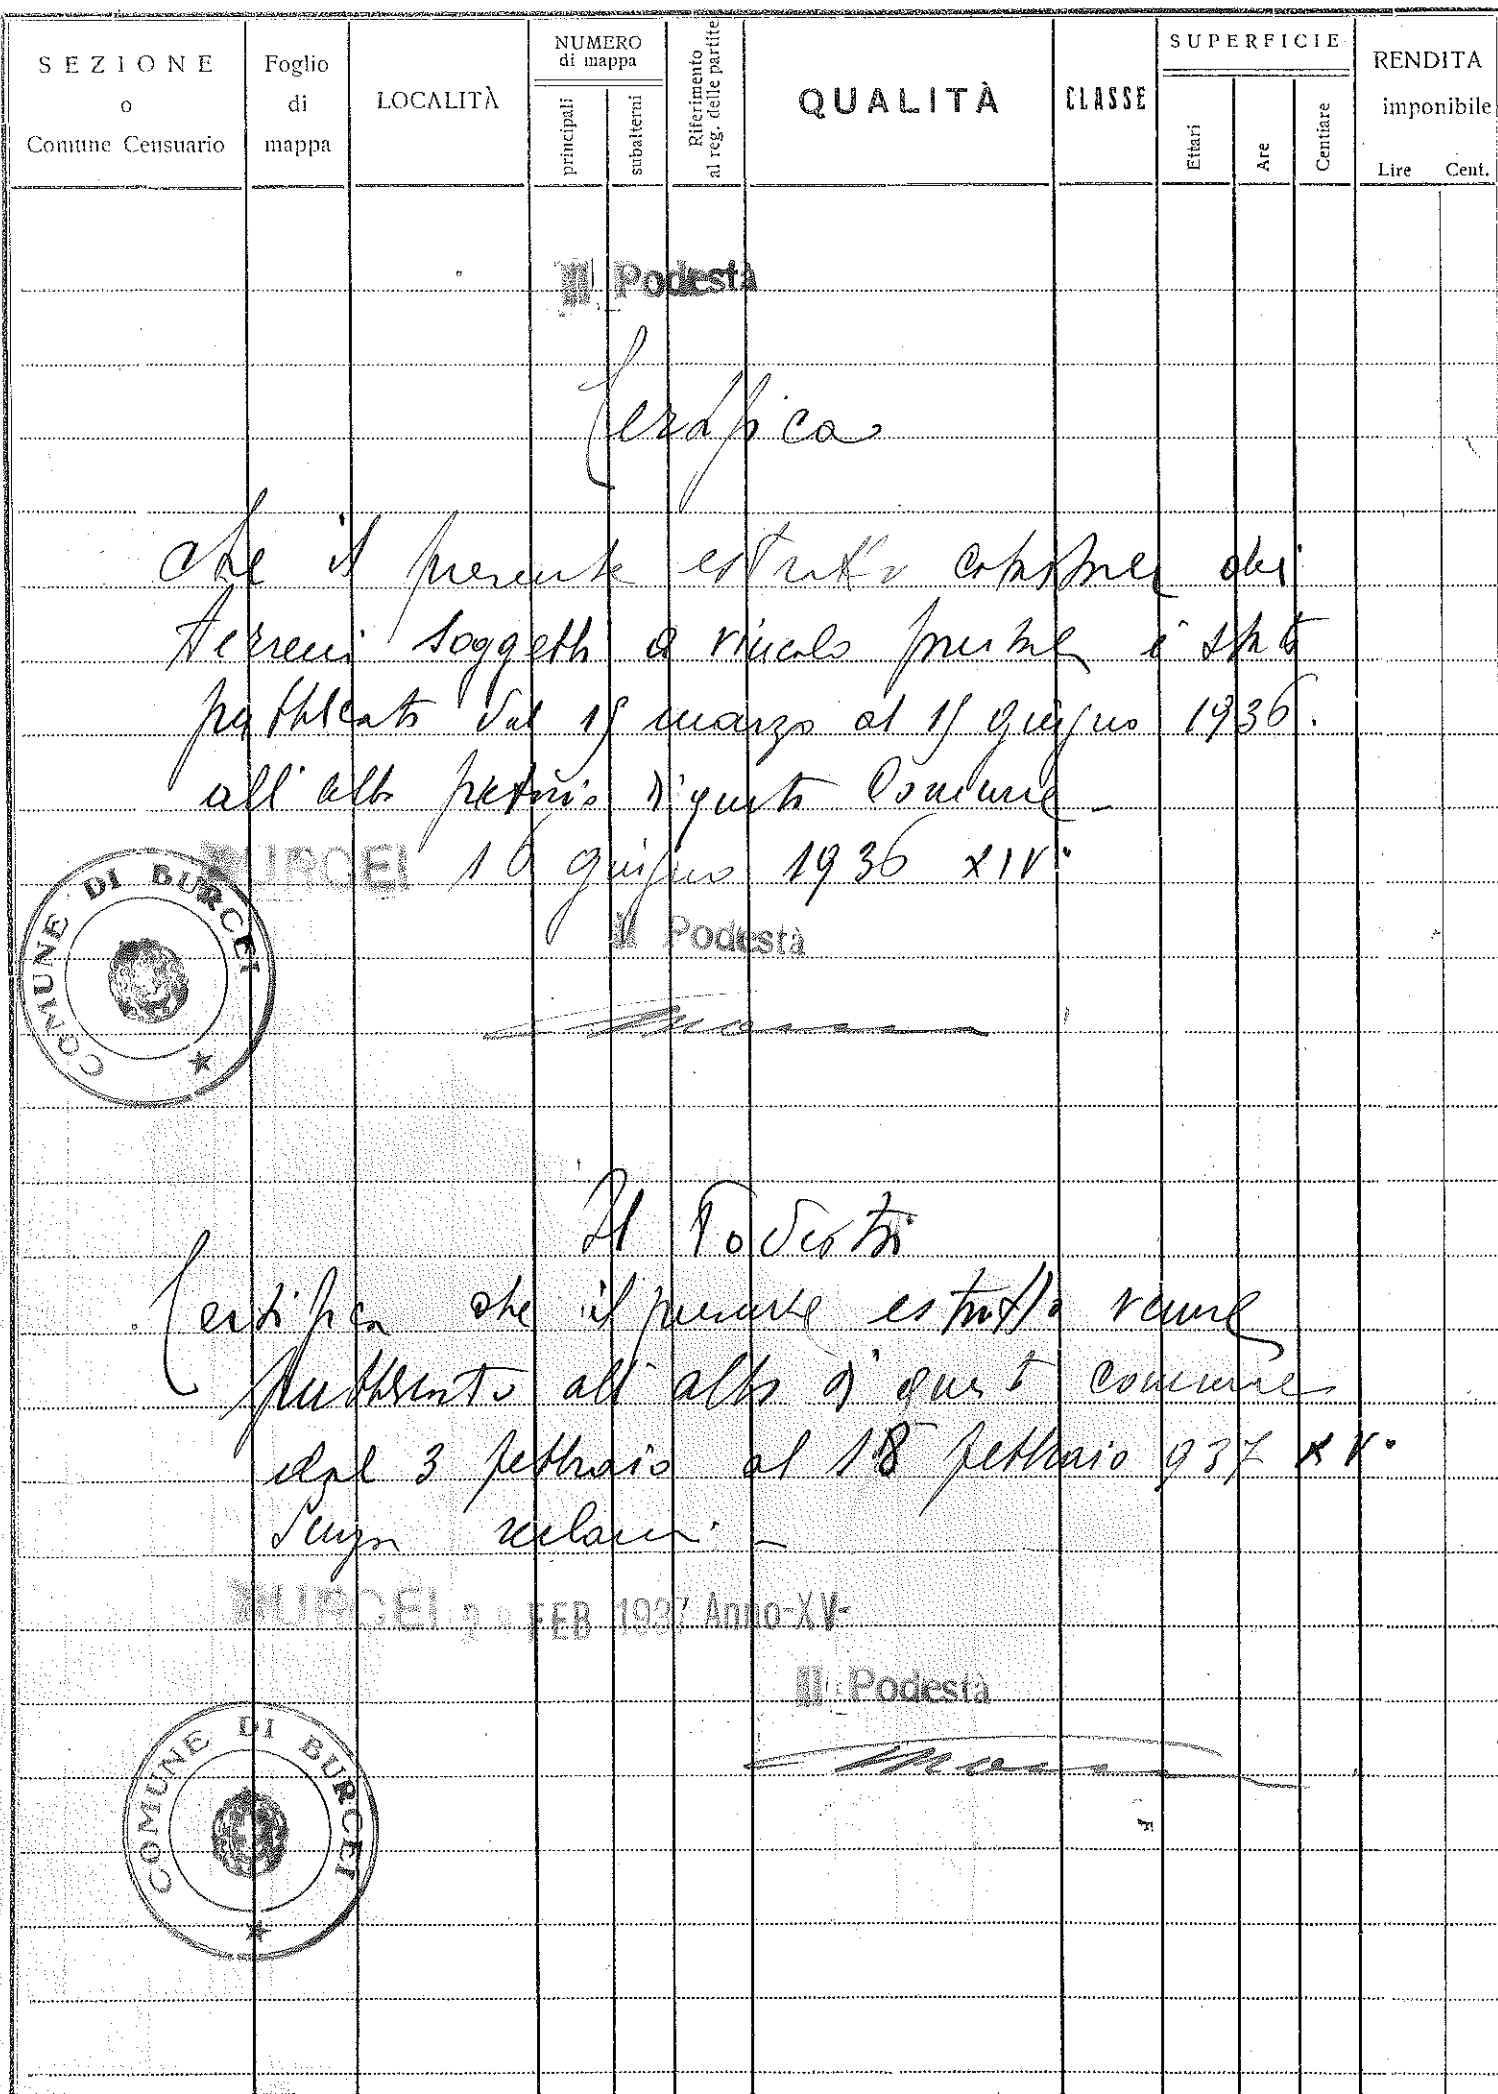 SEZIONE
o
Comune Censuario
Foglio
di
mappa
LOCALITÀ
NUMERO
di mappa
principali
subalterni
Riferimento
al reg. delle partite
QUALITÀ
CLASSE
SUPERFICIE
Ettari
Are
Centiare
RENDITA
imponibile
Lire Cent.
Il Podestà
Certifica
che il presente estratto catastale dei
terreni soggetti a vincolo è stato
pubblicato dal 15 marzo al 15 giugno 1936.
all'albo pretorio di questo Comune -
BURCEI 16 giugno 1936 XIV°
Il Podestà
COMUNE DI BURCEI
Il Podestà
Certifica che il presente estratto venne
pubblicato all'albo di questo comune
dal 3 febbraio al 18 febbraio 937 XV°
senza reclami. -
BURCEI FEB 1937 Anno-XV-
Il Podestà
COMUNE DI BURCEI